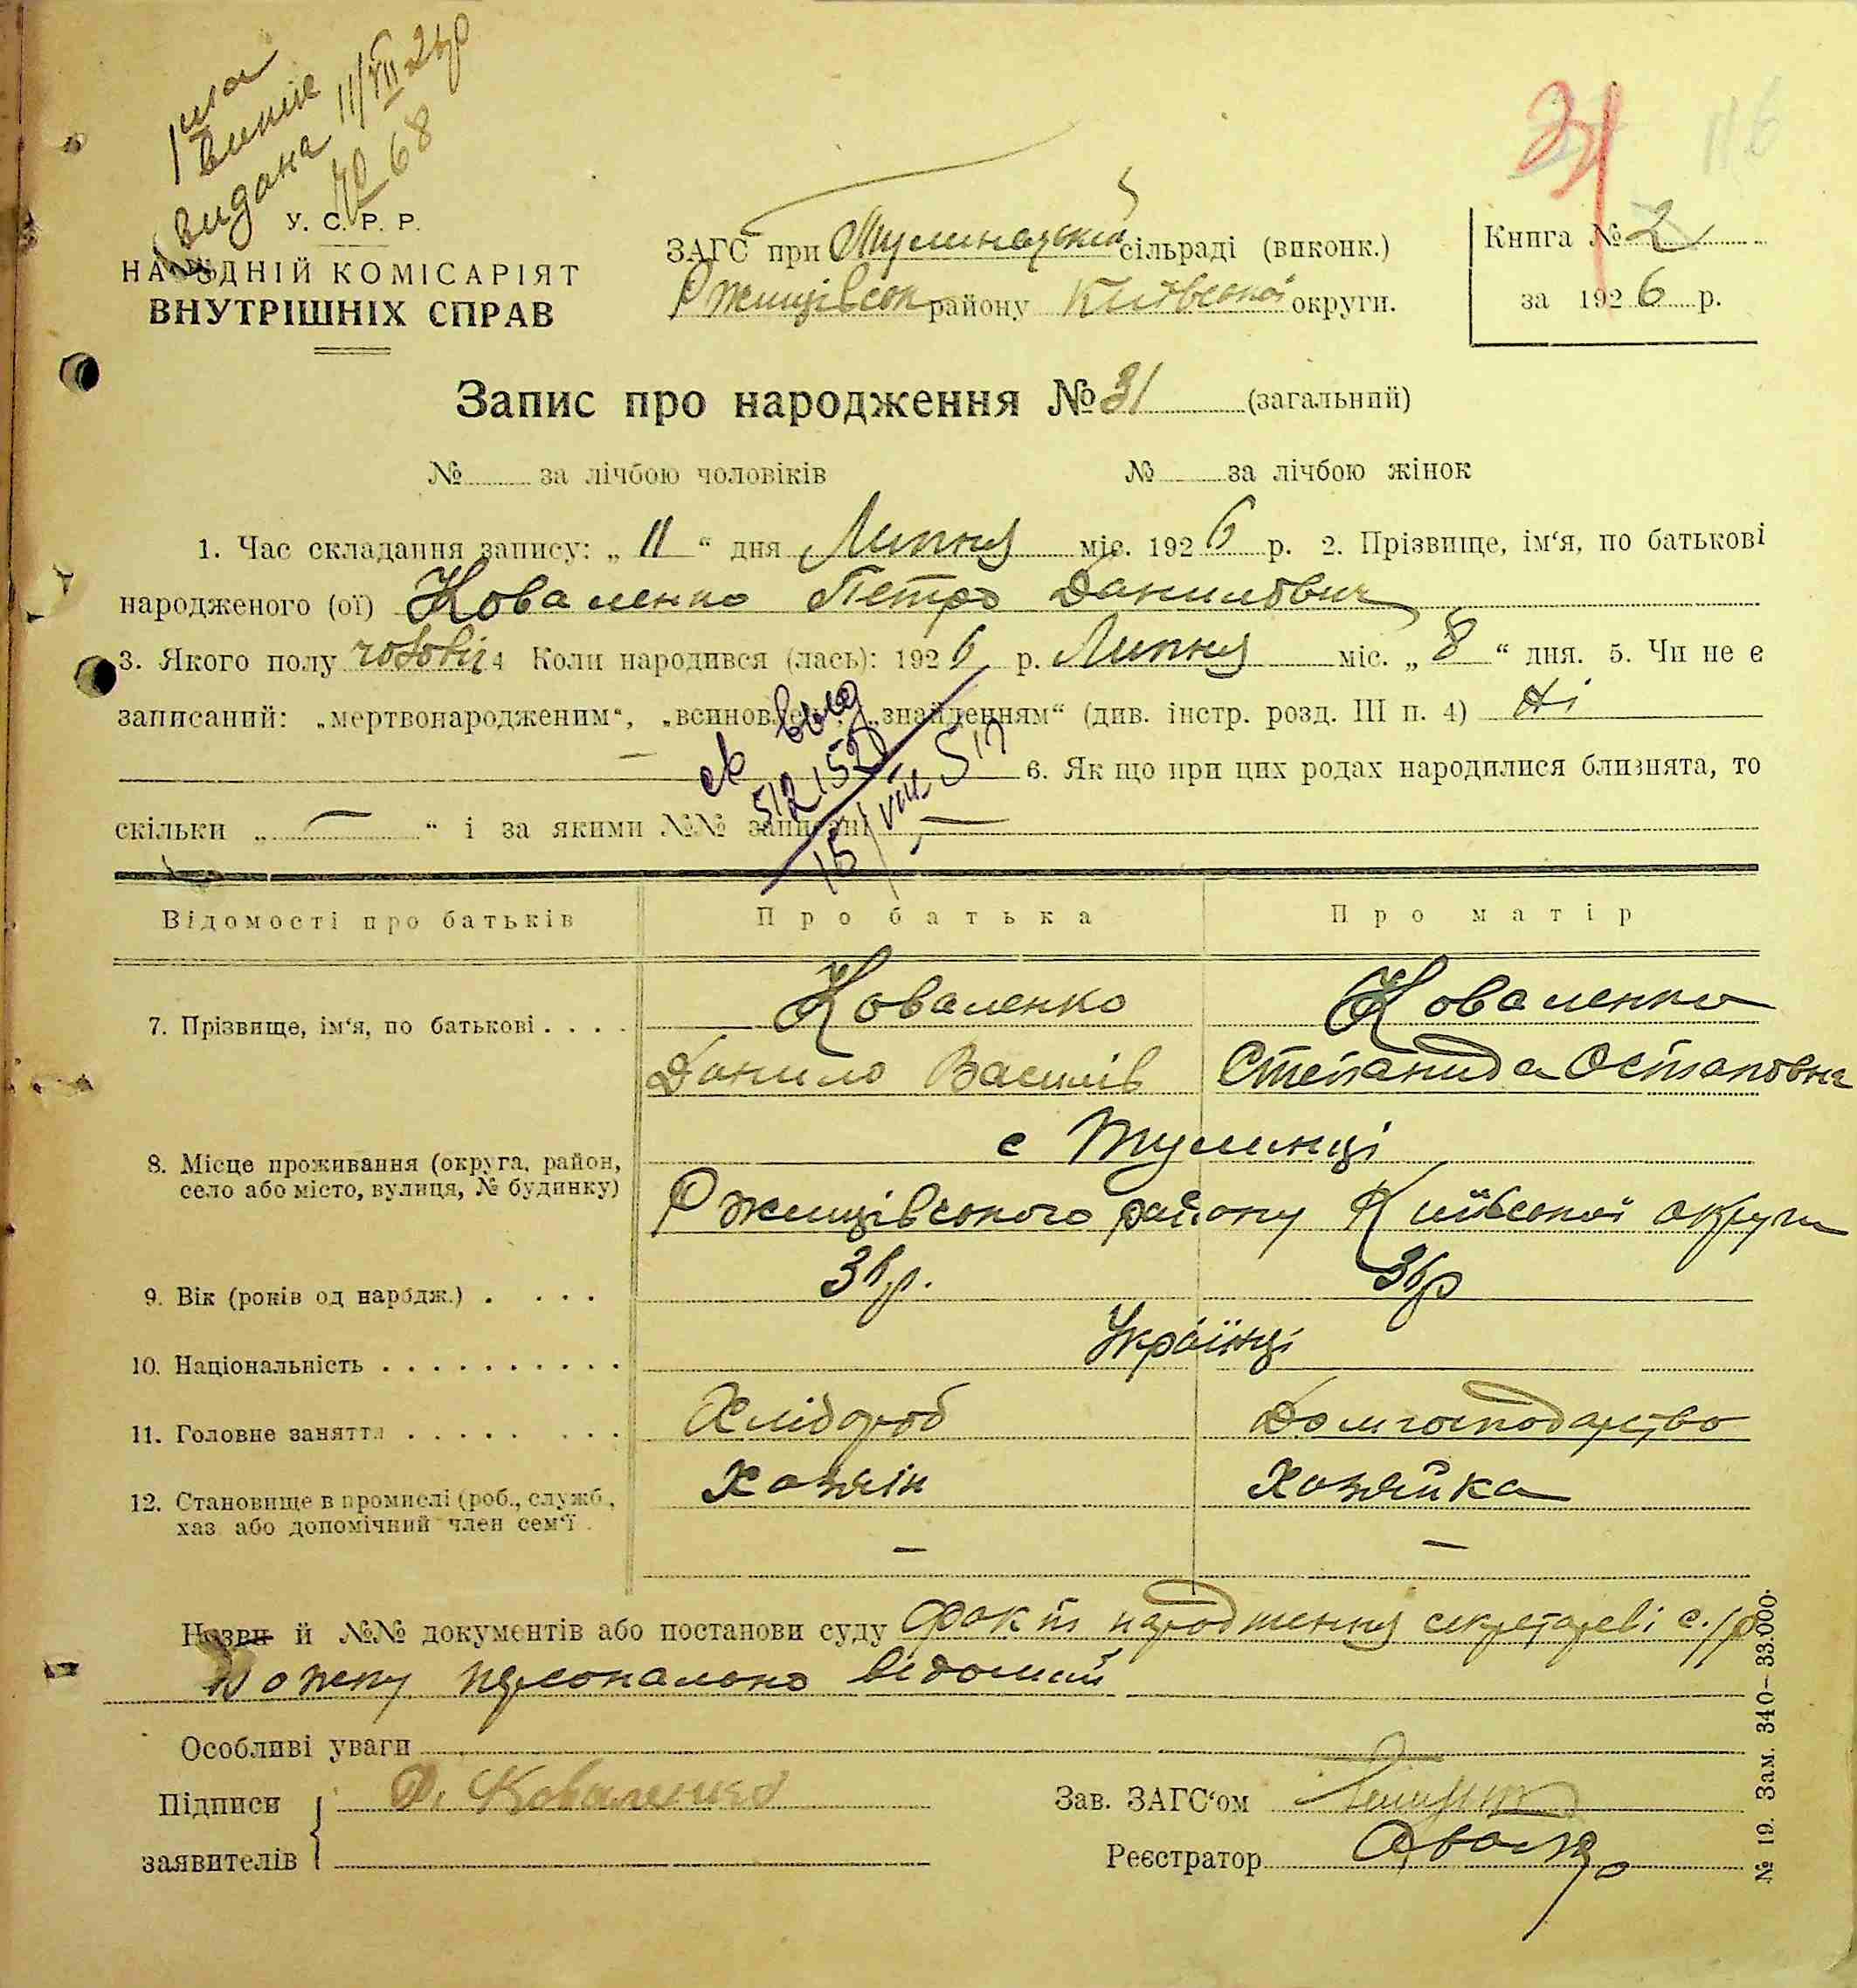 1ша
випис
видана 11/VII 26р
№ 68
У. С. Р. Р.
НАРОДНІЙ КОМІСАРІЯТ
ВНУТРІШНІХ СПРАВ
ЗАГС при Тулинській сільраді (виконк.)
Ржищівськ району Київської округи.
31 116
Книга № 2
за 1926 р.
Запис про народження № 31 (загальний)
№ за лічбою чоловіків № за лічбою жінок
1. Час складання запису: „ 11 “ дня Липня міс. 1926 р. 2. Прізвище, ім‘я, по батькові
народженого (ої) Коваленко Петро Данилович
3. Якого полу чоловіч 4 Коли народився (лась): 1926 р. Липня міс. „ 8 “ дня. 5. Чи не є
записаний: „мертвонародженим“, „всиновленим“, „знайденням“ (див. інстр. розд. III п. 4) Ні
— 6. Як що при цих родах народилися близнята, то
скільки „ — “ і за якими №№ записані —
св выд
512152
15/VIII 517
Відомості про батьків Про батька Про матір
7. Прізвище, ім‘я, по батькові . . . . Коваленко Коваленко
Данило Василів Степанида Остаповна
8. Місце проживання (округа, район,
село або місто, вулиця, № будинку)
с Тулинці
Ржищівського району Київської округи
9. Вік (років од нарбдж.) . . . . 36р. 36р
10. Національність . . . . . . . . . . Українці
11. Головне заняття . . . . . . . . Хлібороб Домгосподарство
12. Становище в промислі (роб., служб.,
хаз. або допомічний член сем‘ї .
Хозяін Хозяйка
— —
Назви й №№ документів або постанови суду Факт народження секретареві с./р
персонально відомий
Особливі уваги
Підписи Д. Коваленко Зав. ЗАГС‘ом
заявителів Реєстратор
№ 19. Зам. 340–33.000.